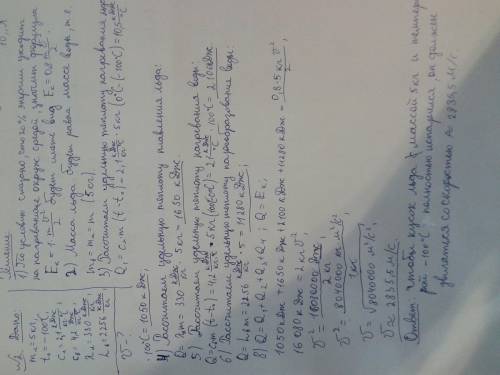 Решение
№2 Дано:
m₁ = 5 кг,
t₁ = -100°C
c₁ = 2,1 кДж/кг°C
c₂ = 4,2 кДж/кг°C
λ₁ = 330 кДж/кг
L₁ = 2256 кДж/кг
v - ?
1) По условию сказано, что 20% энергии уходит
на нагревание окруж. средой, значит формула
Eₖ = 1·m·v²/2 будет иметь вид Eₖ = 0,8 m v²/2
2) Масса льда будет равна массе воды, т.е.
m₁ = m₂ = m (5 кг)
3) Рассчитаем удельную теплоту нагревания льда
Q₁ = c₁m(t - t₁) = 2,1 кДж/кг°C · 5 кг (0°C - (-100°C)) = 10,5 кДж/°C ·
· 100°C = 1050 кДж;
4) Рассчитаем удельную теплоту плавления льда:
Q = λ₁m = 330 кДж/кг · 5 кг = 1650 кДж
5) Рассчитаем удельную теплоту нагревания воды:
Q = c₂m(t - t₁) = 4,2 кДж/кг°C · 5 кг (100°C - 0°C) = 21 кДж/°C · 100°C = 2100 кДж
6) Рассчитаем удельную теплоту парообразования воды:
Q = L₁m = 2256 кДж/кг · 5 = 11280 кДж;
8) Q = Q₁ + Q₂ + Q₃ + Q₄; Q = Eₖ;
1050 кДж + 1650 кДж + 2100 кДж + 11280 кДж = 0,8·5 кг v²/2,
16 080 кДж = 2 кг v²
v² = 16080000 Дж / 2 кг
v² = 8040000 м²/с²
v = √8040000 м²/с²,
v ≈ 2835,5 м/с.
Ответ: чтобы кусок льда массой 5 кг и темпера-
рой -100°C полностью испарился, он должен
двигаться со скоростью ≈ 2836,5 м/с.